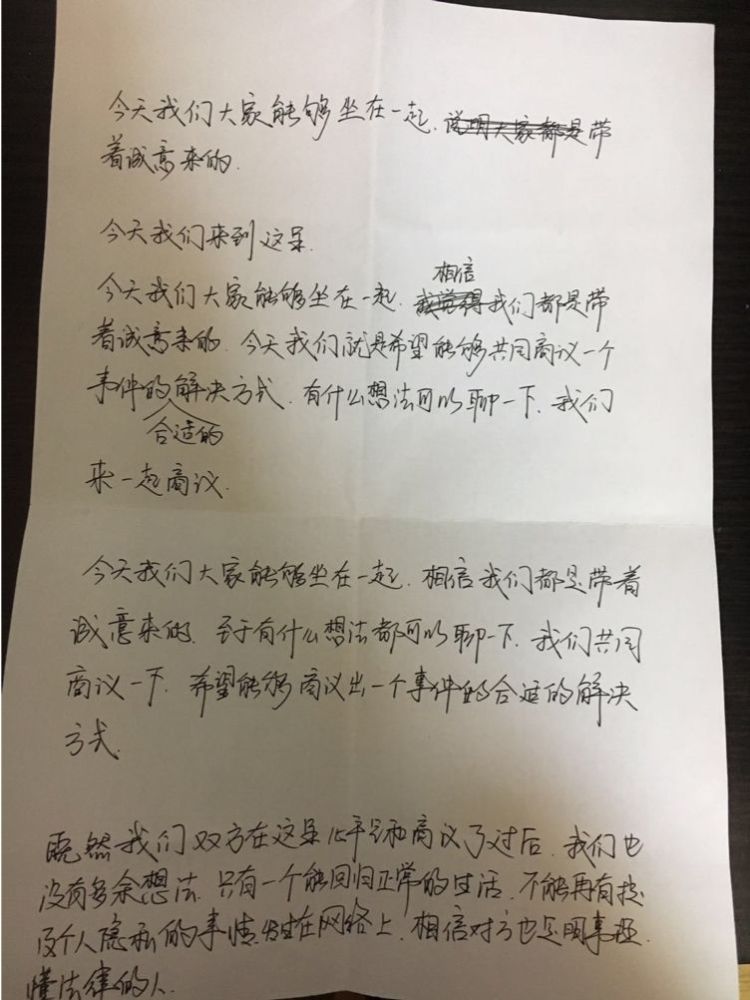 今天我们大家能够坐在一起.说明大家都是带
着诚意来的.
今天我们来到这里.
相信
今天我们大家能够坐在一起.我觉得我们都是带
着诚意来的.今天我们就是希望能够共同商议一个
事件的解决方式.有什么想法可以聊一下.我们
合适的
来一起商议.
今天我们大家能够坐在一起.相信我们都是带着
诚意来的.至于有什么想法都可以聊一下.我们共同
商议一下.希望能够商议出一个事件的合适的解决
方式.
既然我们双方在这里心平气和商议了过后.我们也
没有多余想法.只有一个能回归正常的生活.不能再有技
及个人隐私的事情.发生在网络上.相信对方也是明事理.
懂法律的人.